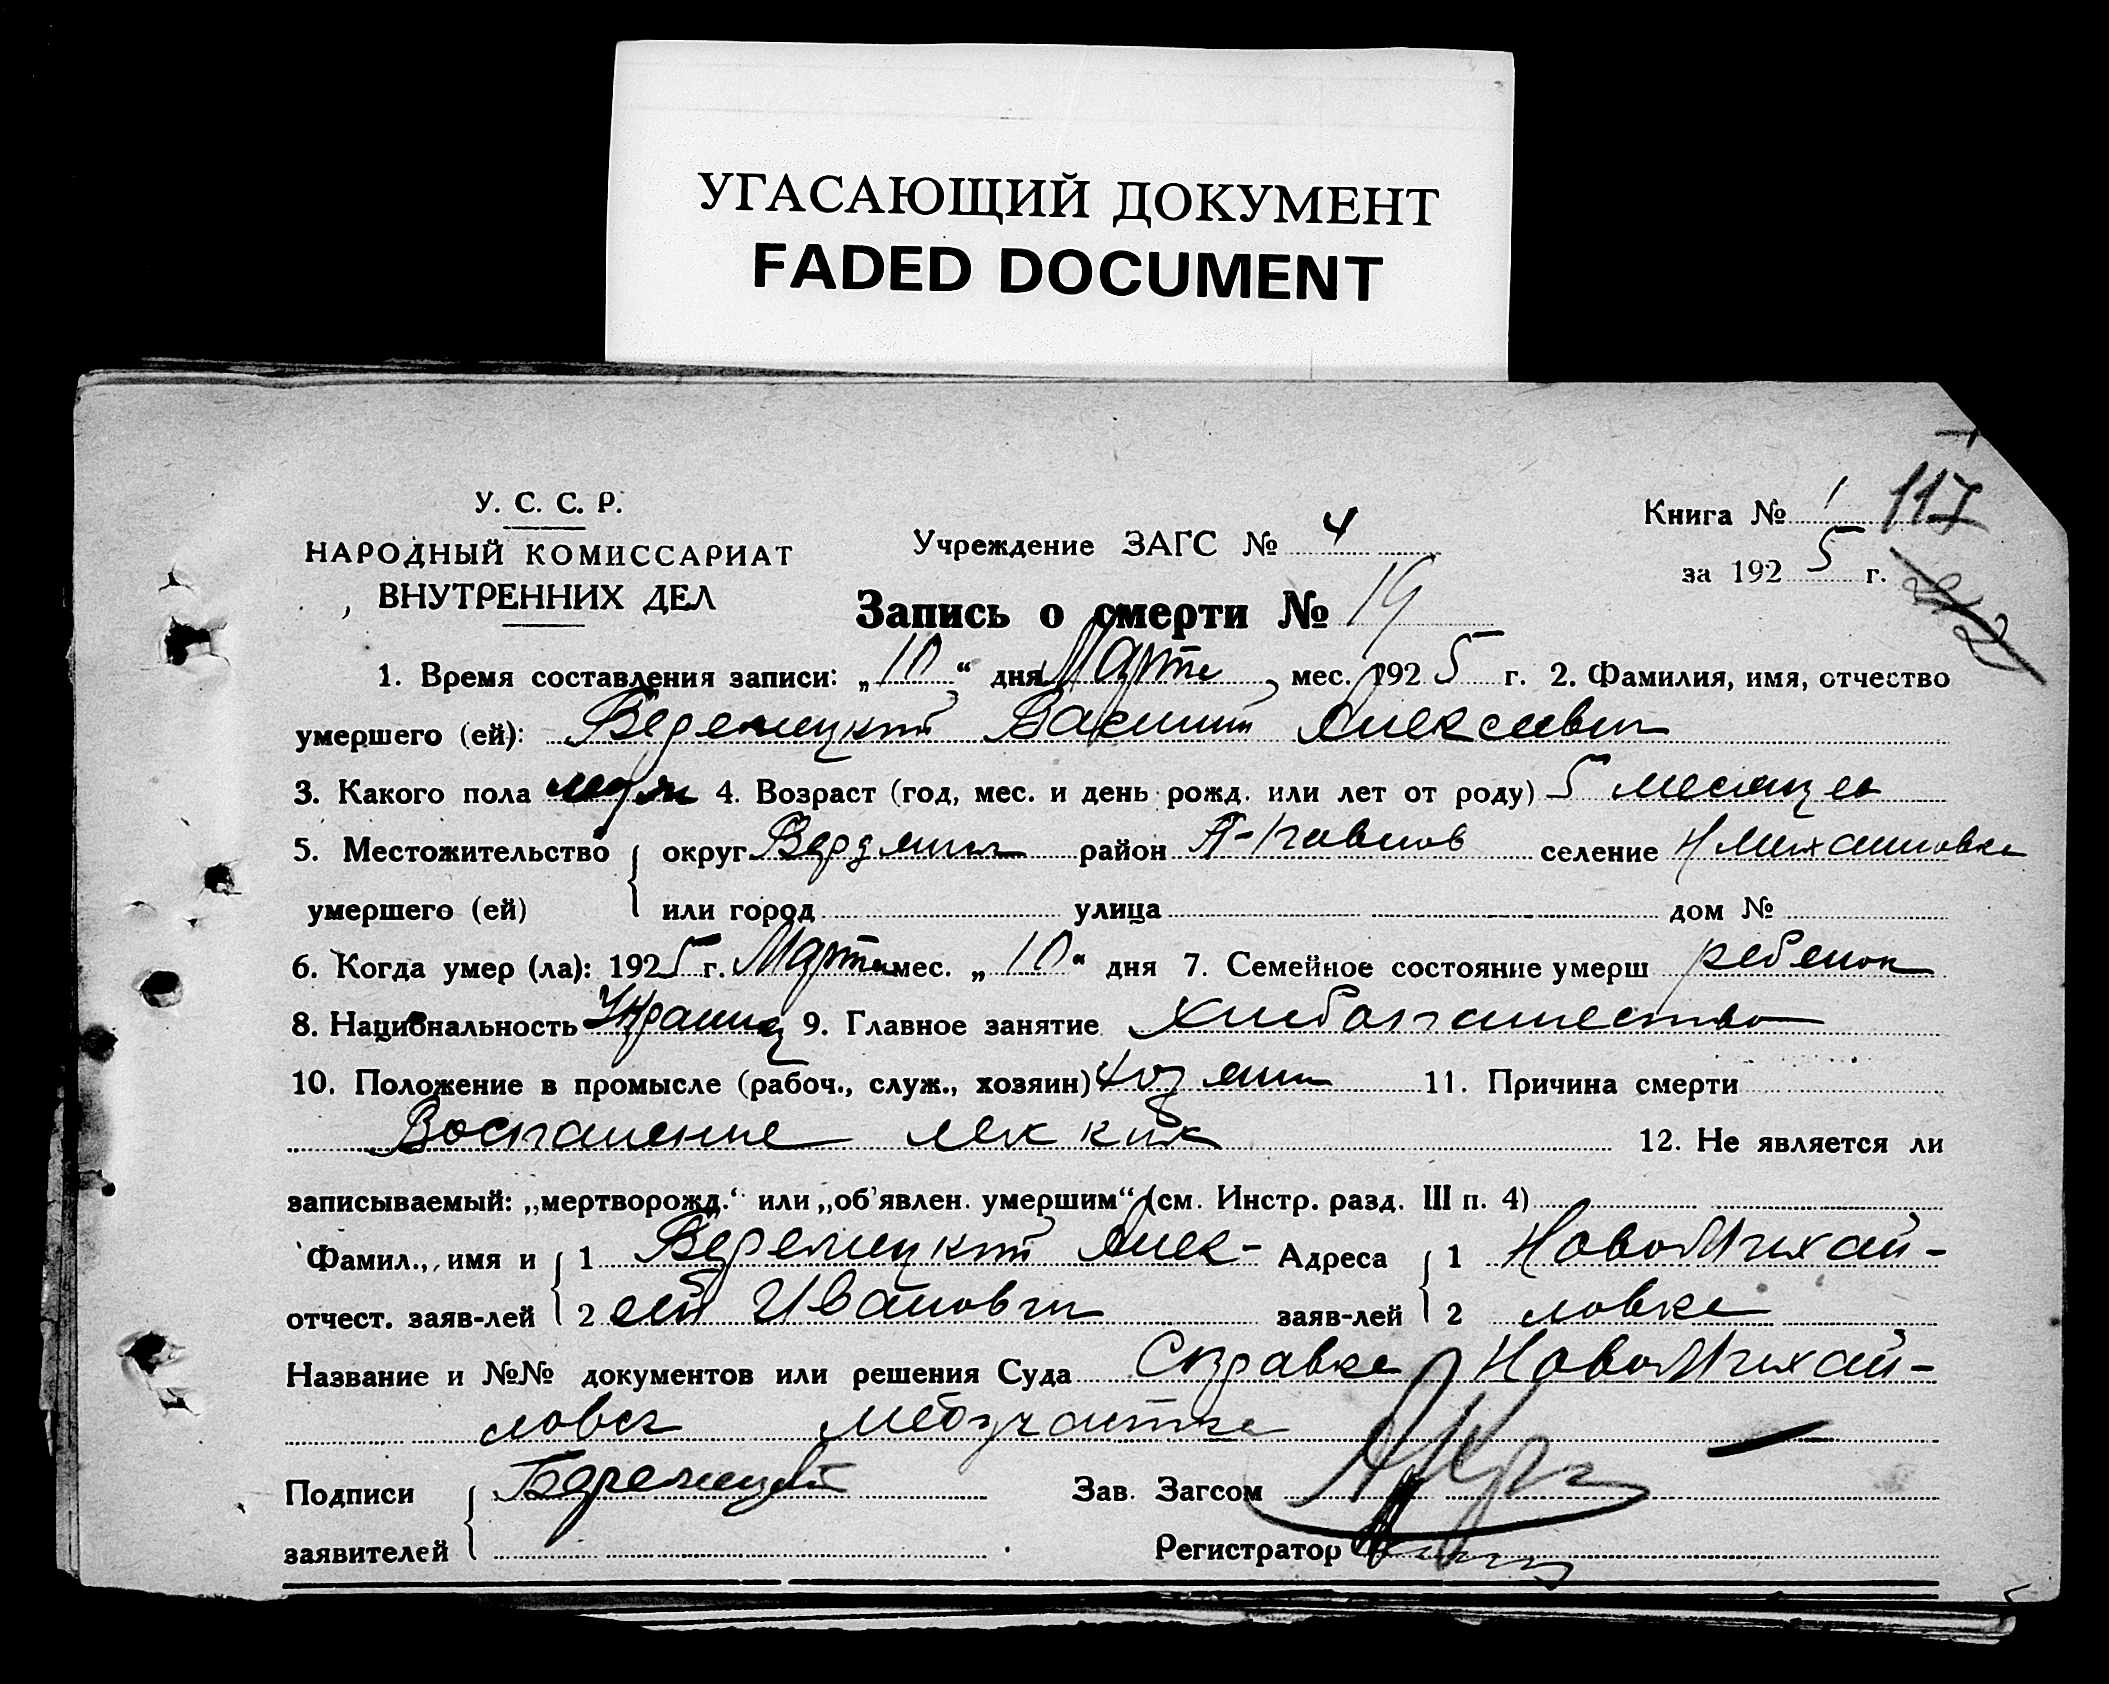 УГАСАЮЩИЙ ДОКУМЕНТ
FADED DOCUMENT
У. С. С. Р.
НАРОДНЫЙ КОМИССАРИАТ
ВНУТРЕННИХ ДЕЛ
Учреждение ЗАГС № 4
Книга № 1 117
за 1925 г.
Запись о смерти № 19
1. Время составления записи: „10“ дня Марта мес. 1925 г. 2. Фамилия, имя, отчество
умершего (ей): Веремецкий Василий Алексеевич
3. Какого пола муж 4. Возраст (год, мес. и день рожд. или лет от роду) 5 месяцев
5. Местожительство округ район селение Н Михайловка
умершего (ей) или город улица дом №
6. Когда умер (ла): 1925 г. Марта мес. „10“ дня 7. Семейное состояние умерш ребенок
8. Национальность Украинец 9. Главное занятие хлебопашество
10. Положение в промысле (рабоч., служ., хозяин) хозяин 11. Причина смерти
Воспаление легких
12. Не является ли
записываемый: „мертворожд.“ или „об'явлен. умершим“ (см. Инстр. разд. III п. 4)
Фамил., имя и 1 Веремецкий Алек- Адреса 1 НовоМихай-
отчест. заяв-лей 2 сей Иванович заяв-лей 2 ловка
Название и №№ документов или решения Суда Справка НовоМихай-
ловск медучастка
Подписи Веремецкий Зав. Загсом
заявителей Регистратор